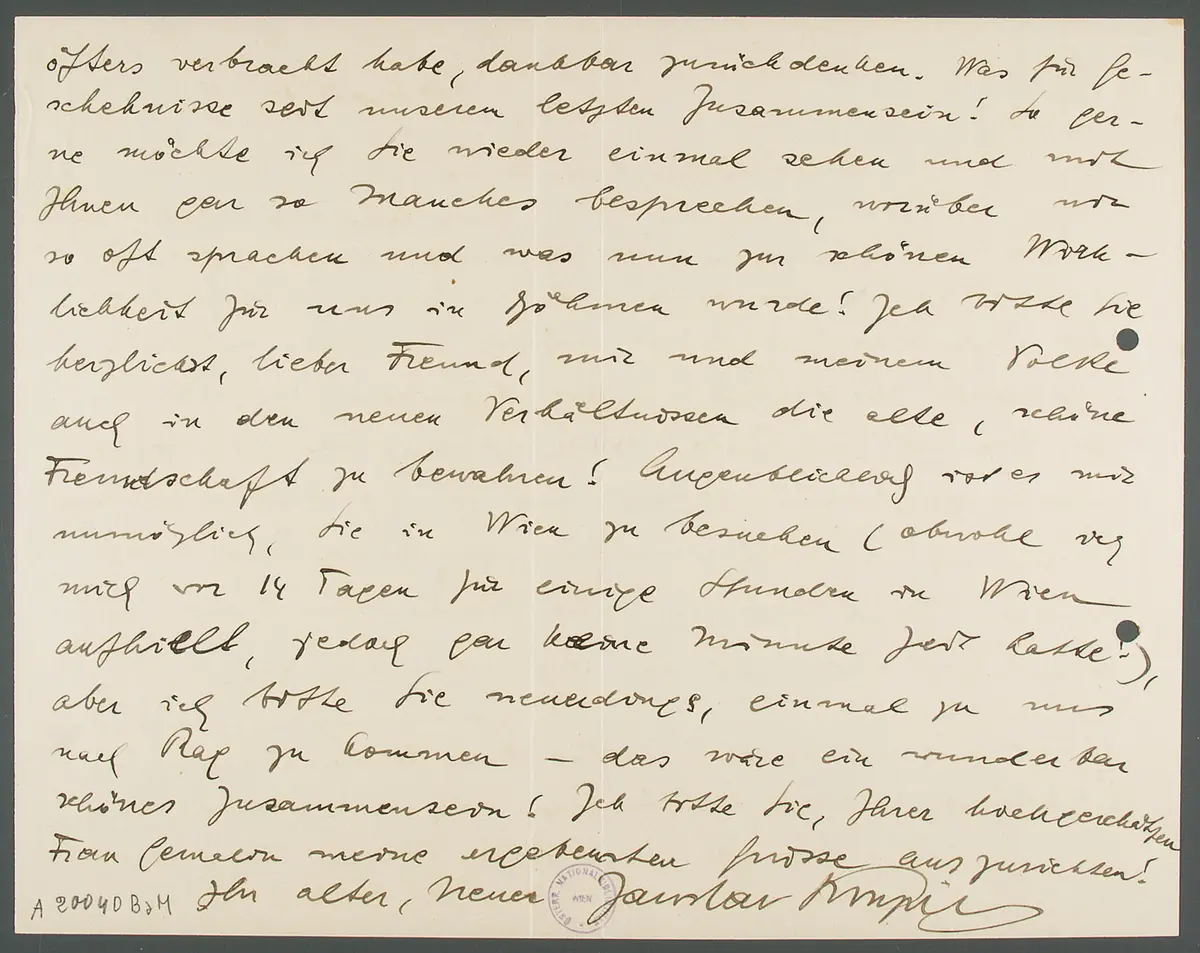 öfters verbracht habe, dankbar zurückdenken. Was für Ge-
schehnisse seit unserem letzten Zusammensein! So ger-
ne möchte ich Sie wieder einmal sehen und mit
Ihnen gar so Manches besprechen, worüber wir
so oft sprachen und was nun zur schönen Wirk-
lichkeit für uns in Böhmen wurde! Ich bitte Sie
herzlichst, lieber Freund, mir und meinem Volke
auch in den neuen Verhältnissen die alte, schöne
Freundschaft zu bewahren! Augenblicklich ist es mir
unmöglich, Sie in Wien zu besuchen (obwohl ich
mich vor 14 Tagen für einige Stunden in Wien
aufhielt, jedoch gar keine Minute Zeit hatte!),
aber ich bitte Sie neuerdings, einmal zu uns
nach Prag zu kommen – das wäre ein wunderbar
schönes Zusammensein! Ich bitte Sie, Ihrer hochgeschätzten
Frau Gemalin meine ergebensten Grüsse auszurichten!
Ihr alter, treuer Jaroslav
A 20040 BaM
ÖSTERR. NATIONALBIBLIOTHEK WIEN